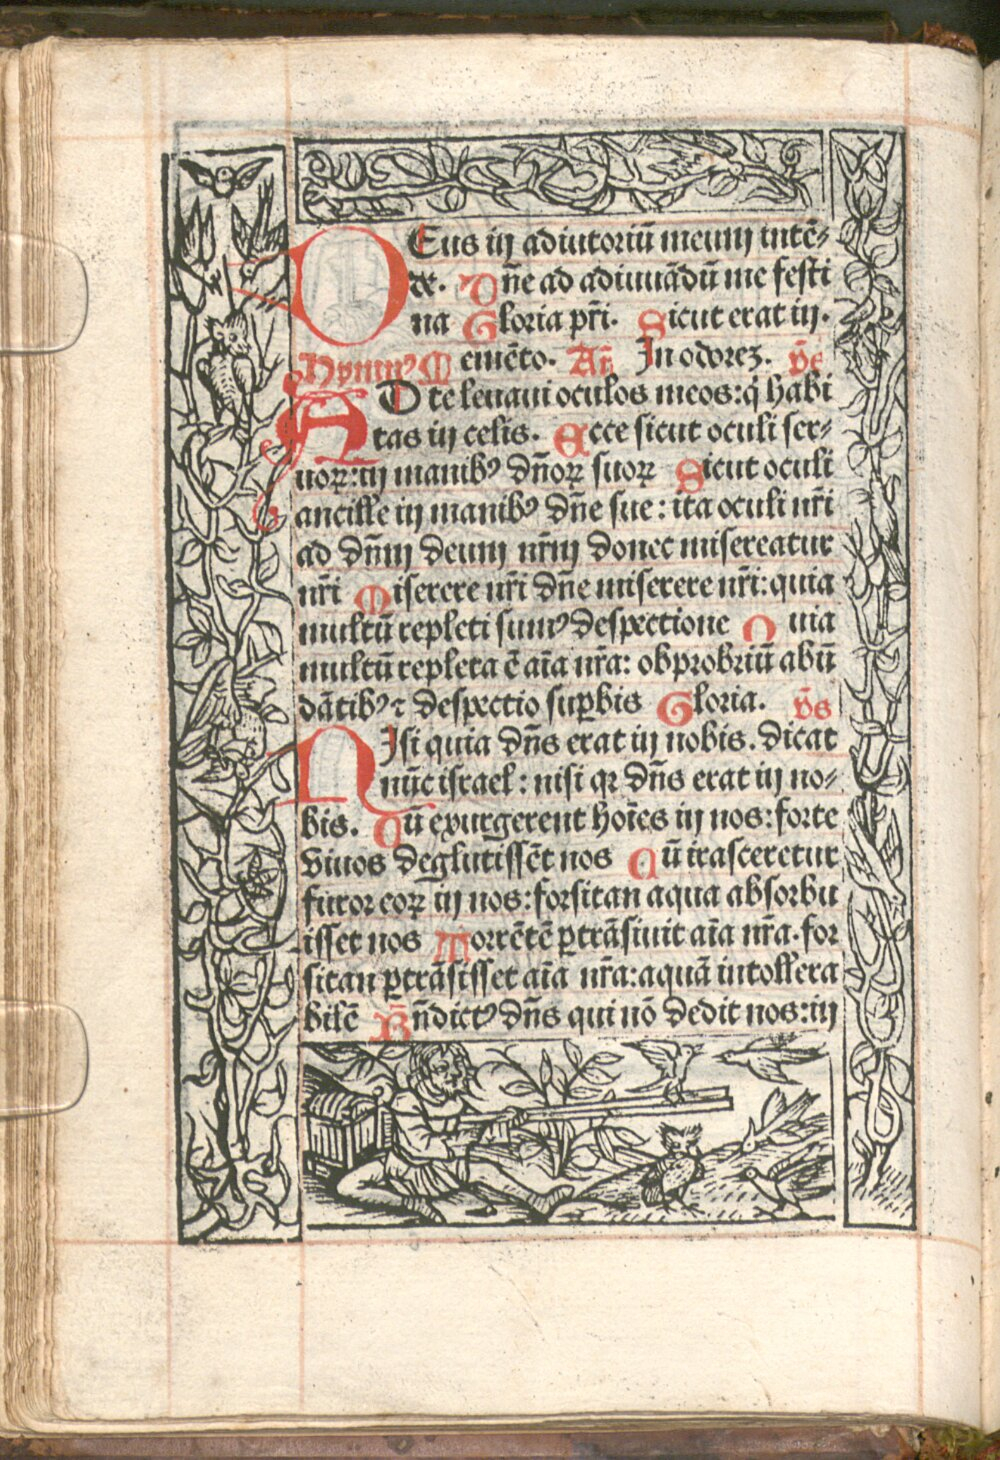 DEus in adiutoriū meum intē-
de. Dn̄e ad adiuuādū me festi
na Gloria pr̄i. Sicut erat in.
Hymnꝰ Memēto. An̄ In odorez. p̄s
AD te leuaui oculos meos: q̇ habi
tas in celis. Ecce sicut oculi ser-
uoꝝ: in manibꝰ dn̄oꝝ suoꝝ Sicut oculi
ancille in manibꝰ dn̄e sue: ita oculi nr̄i
ad dn̄m deum nr̄m donec misereatur
nr̄i Miserere nr̄i dn̄e miserere nr̄i: quia
multū repleti sumꝰ despectione Quia
multū repleta ē aīa nr̄a: obprobriū abū
dātibꝰ ⁊ despectio suꝑbis Gloria. p̄s
NIsi quia dn̄s erat in nobis. dicat
nūc israel: nisi qꝛ dn̄s erat in no-
bis. Dū exurgerent hoīes in nos: forte
viuos deglutissēt nos Cū irasceretur
furor eoꝝ in nos: forsitan aqua absorbu
isset nos Torrētē ꝑtrāsiuit aīa nr̄a. for
sitan ꝑtrāsisset aīa nr̄a: aquā intollera
bilē Bn̄dictꝰ dn̄s qui nō dedit nos: in